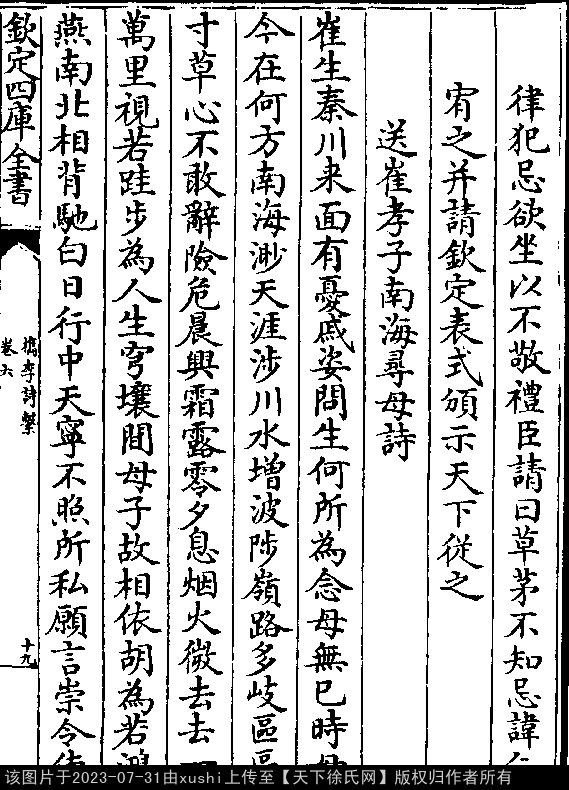 律犯忌欲坐以不敬禮臣請曰草茅不知忌諱
宥之并請欽定表式頒示天下從之
送崔孝子南海尋母詩
崔生秦川来面有憂戚姿問生何所為念母無已時母
今在何方南海渺天涯涉川水增波陟嶺路多岐區區
寸草心不敢辭險危晨興霜露零夕息烟火微去去
萬里視若跬步為人生穹壤間母子故相依胡為若鴻
燕南北相背馳白日行中天寧不照所私願言崇令德
欽定四庫全書
檇李詩繫
卷六
十九
该图片于2023-07-31由xushi上传至【天下徐氏网】版权归作者所有